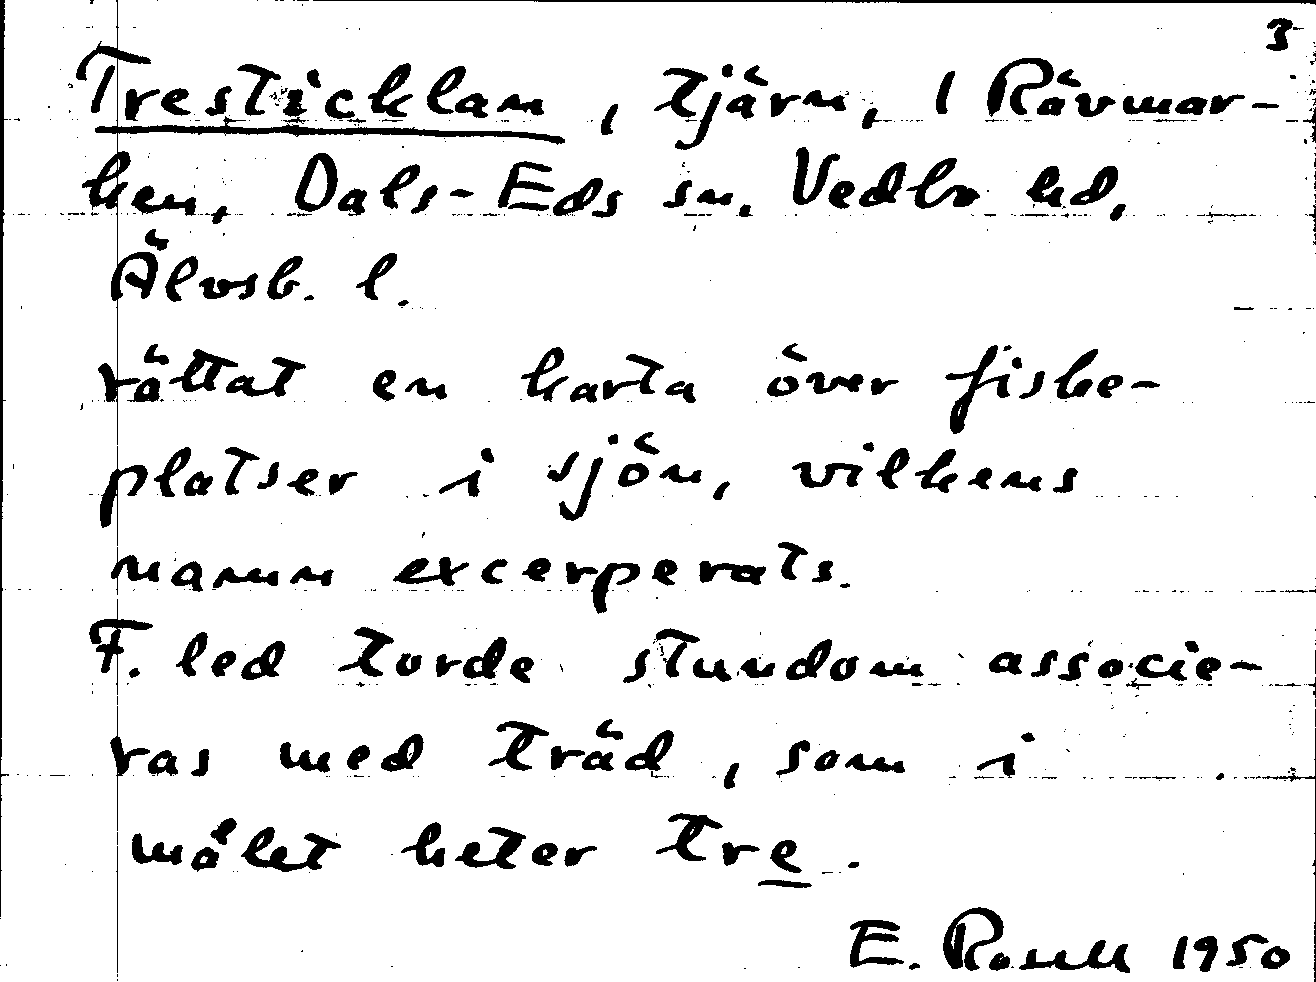 3
Tresticklan, tjärn, 1 Rävmar-
ken, Dals-Eds sn. Vedbo hd,
Älvsb. l.
rättat en karta över fiske-
platser i sjön, vilkens
namn excerperats.
F. led torde stundom associe-
ras med träd, som i
målet heter tre.
E. Rosell 1950